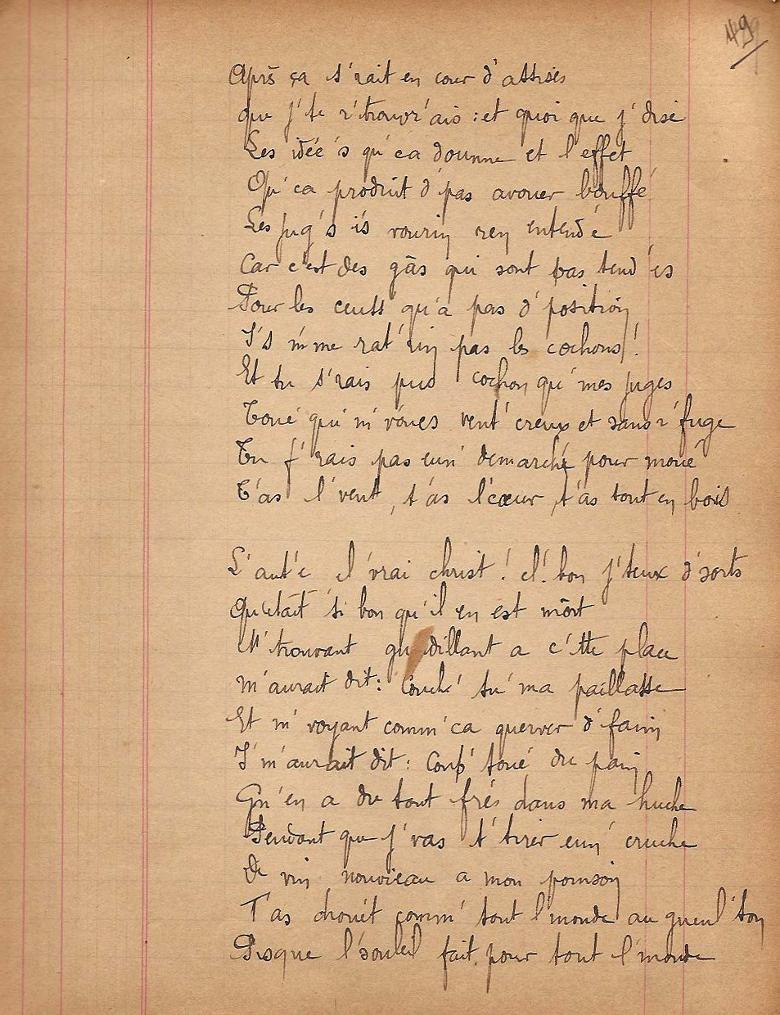 49
Après ça s'rait en cour d'assises
que j'te r'trouv'rais : et quoi que j'dise
Les idée's qu'ca dounne et l'effet
Qu'ca produit d'pas avouer bouffé
Les jug's is vourin ren entend'e
Car c'est des gâs qui sont pas tend'es
Pour les ceuss qu'a pas d'position
I's m'me rat'rin pas les cochons !
Et tu s'rais pus cochon qu'mes juges
Toué qui m'voués vent'creux et sans r'fuge
Tu f'rais pas eun' demarche pour moué
T'as l'vent', t'as l'cœur, t'as tout en bois

L'aut'e el'vrai christ ! el' bon j'teux d'sorts
Qu'était si bon qu'il en est mort
M'trouvant guerdillant a c'tte place
M'aurait dit: Couche' su' ma paillasse
Et m'voyant comm'ca querver d'faim
I'm'aurait dit: Coup' toué du pain
Gn'en a du tout frés dans ma huche
Pendant que j'vas t'tirer eun' cruche
De vin nouvieau a mon poinson
T'as drouét comm' tout l'monde au gueul'ton
Pisque l'souleil fait pour tout l'monde